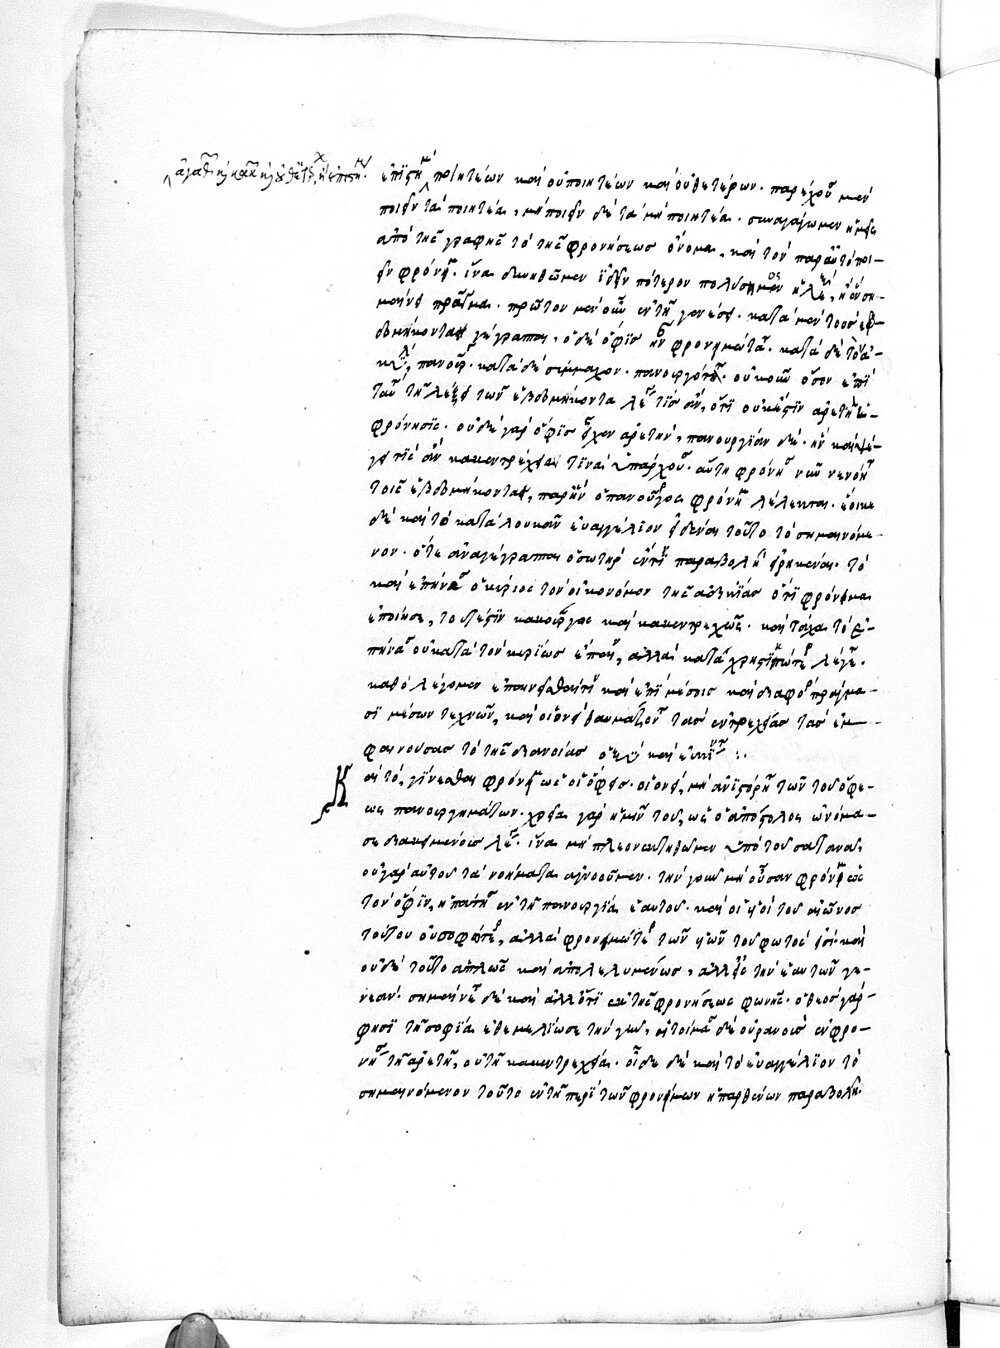 ἀγαθῶν καὶ κακῶν καὶ οὐθετέρων, ἢ ἐπιστήμη
ἐπιστήμη ποιητέων καὶ οὐ ποιητέων καὶ οὐθετέρων. παρέχου μὲν
ποιεῖν τὰ ποιητέα, μὴ ποιεῖν δὲ τὰ μὴ ποιητέα. συναγάγωμεν
ἀπὸ τῆς γραφῆς τὸ τῆς φρονήσεως ὄνομα. καὶ τὸν παρ' αὐτὸ ποι-
εῖν φρόν. ἵνα δυνηθῶμεν ἰδεῖν πότερον πολύσημον ἡ λέξις, ἢ ἓν ση-
μαίνει πρᾶγμα. πρῶτον μὲν οὖν ἐν τῇ γενέσει. κατὰ μὲν τοὺς ἑβ-
δομήκοντα γέγραπται, ὁ δὲ ὄφις ἦν φρονιμώτατος. κατὰ δὲ τὸν ἀ-
κύλαν, πανοῦργος. κατὰ δὲ σύμμαχον. πανουργότερος. οὐκοῦν ὅσον ἐπὶ
ταύτῃ τῇ λέξει τῶν ἑβδομήκοντα λέγει τίς ἂν, ὅτι οὐκ ἔστιν ἀρετὴ ἡ
φρόνησις. οὐδὲ γὰρ ὁ ὄφις εἶχεν ἀρετήν, πανουργίαν δέ. ἣν καὶ λέ-
γει τις ἂν κακεντρέχειαν τινα ὑπάρχουσαν. αὕτη φρόνησις νῦν νενόηται
τοῖς ἑβδομήκοντα, παρ' ἣν ὁ πανοῦργος φρόνιμος λέλεκται. ἔοικε
δὲ καὶ τὸ κατὰ λουκᾶν εὐαγγέλιον εἰδέναι τοῦτο τὸ σημαινόμε-
νον. ὅτε ἀναγέγραπται ὁ σωτὴρ ἐν τῇ παραβολῇ εἰρηκέναι. τὸ
καὶ ἐπῄνεσεν ὁ κύριος τὸν οἰκονόμον τῆς ἀδικίας ὅτι φρονίμως
ἐποίησε, τουτέστιν πανούργως καὶ κακεντρεχῶς. καὶ τάχα τὸ ἐ-
πῄνεσεν οὐ κατὰ τὸν κυρίως ἔπαινον, ἀλλὰ καταχρηστικώτερον λέγεται.
καθὸ λέγομεν ἐπαινεῖσθαι τινὰ καὶ ἐπὶ μέσοις καὶ διαφόροις πράγμα-
σι μέσων τεχνῶν, καὶ οἱονεὶ θαυμάζουσι τὰς ἐντρεχείας τὰς ἐμ-
φαινούσας τὸ τῆς διανοίας ὀξὺ καὶ
Καὶ τό, γίνεσθαι φρόνιμοι ὡς οἱ ὄφεις. οἱονεὶ, μὴ ἀνιστόρητοι τῶν τοῦ ὄφε-
ως πανουργημάτων. χρεία γὰρ ἡμῖν τούτου, ὡς ὁ ἀπόστολος ὠνόμα-
σε διανοημένοις λέγει. ἵνα μὴ πλεονεκτηθῶμεν ὑπὸ τοῦ σατανᾶ.
οὐ γὰρ αὐτοῦ τὰ νοήματα ἀγνοοῦμεν. τὴν γοῦν μὴ οὖσαν φρόνιμον ὡς
τὸν ὄφιν, ἠπάτησεν ἐν τῇ πανουργίᾳ ἑαυτοῦ. καὶ οἱ υἱοὶ τοῦ αἰῶνος
τούτου οὐ σοφώτεροι, ἀλλὰ φρονιμώτεροι τῶν υἱῶν τοῦ φωτός εἰσι. καὶ
οὐδὲ τοῦτο ἁπλῶς καὶ ἀπολελυμένως, ἀλλ' εἰς τὴν ἑαυτῶν γε-
νεάν. σημαίνεται δὲ καὶ ἄλλό τι ἐκ τῆς φρονήσεως φωνῆς. ὁ θεὸς γάρ
φησι τῇ σοφίᾳ ἐθεμελίωσε τὴν γῆν, ἡτοίμασε δὲ οὐρανοὺς ἐν φρο-
νήσει τῇ ἀρετῇ, οὐ τῇ κακεντρεχείᾳ. οἶδε δὲ καὶ τὸ εὐαγγέλιον τὸ
σημαινόμενον τοῦτο ἐν τῇ περὶ τῶν φρονίμων παρθένων παραβολῇ.